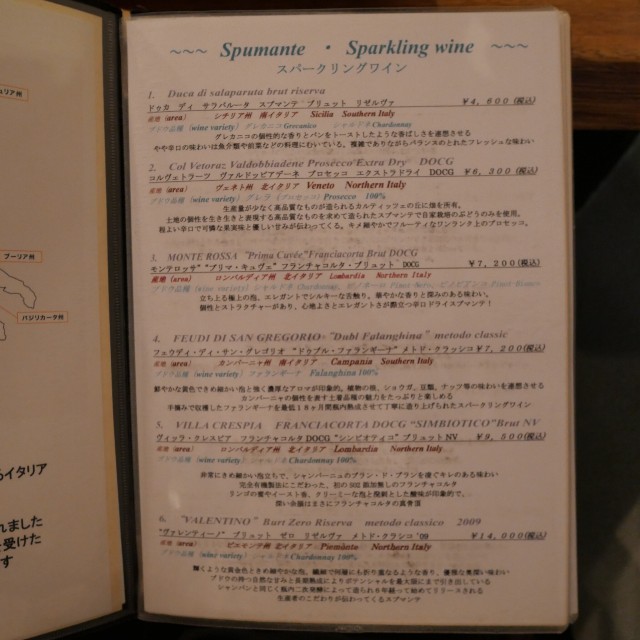 ~~~ Spumante ・ Sparkling wine ~~~
スパークリングワイン
1. Duca di salaparuta brut riserva
ドゥカ ディ サラパルータ スプマンテ ブリュット リゼルヴァ ￥4,600(税込)
産地 (area) シチリア州 南イタリア Sicilia Southern Italy
ブドウ品種 (wine variety) グレカニコ Grecanico シャルドネ Chardonnay
グレカニコの個性的な香りとパンをトーストしたような香ばしさを連想させる
やや辛口の味わいは魚介類や前菜などの料理にむいている。複雑でありながらバランスのとれたフレッシュな味わい
2. Col Vetoraz Valdobbiadene Prosecco Extra Dry DOCG
コルヴェトラーツ ヴァルドッビアデーネ プロセッコ エクストラドライ DOCG ￥6,300(税込)
産地 (area) ヴェネト州 北イタリア Veneto Northern Italy
ブドウ品種 (wine variety) グレラ (プロセッコ) Prosecco 100%
生産量が少なく高品質なものが造られるカルティッツェの丘に畑を所有。
土地の個性を生き生きと表現する高品質なものを求めて造られたスプマンテで自家栽培のぶどうのみを使用。
程よい辛口で可憐な果実味と優しい甘みが伝わってくる。キメ細やかでフルーティなワンランク上のプロセッコ。
3. MONTE ROSSA "Prima Cuvée" Franciacorta Brut DOCG
モンテロッサ "プリマ・キュヴェ" フランチャコルタ・ブリュット DOCG ￥7,200(税込)
産地 (area) ロンバルディア州 北イタリア Lombardia Northern Italy
ブドウ品種 (wine variety) シャルドネ Chardonnay、ピノ・ネーロ Pinot Nero、ピノ・ビアンコ Pinot Bianco
立ち上る極上の泡、エレガントでシルキーな舌触り、華やかな香りと深みのある味わい。
個性とストラクチャーがあり、心地よさとエレガントさが際立つ辛口ドライスプマンテ！
4. FEUDI DI SAN GREGORIO "Dubl Falanghina" metodo classic
フェウディ・ディ・サン・グレゴリオ "ドゥブル・ファランギーナ" メトド・クラッシコ ￥7,200(税込)
産地 (area) カンパーニャ州 南イタリア Campania Southern Italy
ブドウ品種 (wine variety) ファランギーナ Falanghina 100%
鮮やかな黄色できめ細かい泡と強く濃厚なアロマが印象的。植物の根、ショウガ、豆類、ナッツ等の味わいを連想させる
カンパーニャの個性を表す土着品種の魅力をたっぷりと楽しめる
手摘みで収穫したファランギーナを最低18ヶ月間瓶内熟成させて丁寧に造り上げられたスパークリングワイン
5. VILLA CRESPIA FRANCIACORTA DOCG "SIMBIOTICO" Brut NV
ヴィッラ・クレスピア フランチャコルタ DOCG "シンビオティコ" ブリュット NV ￥9,500(税込)
産地 (area) ロンバルディア州 北イタリア Lombardia Northern Italy
ブドウ品種 (wine variety) シャルドネ Chardonnay 100%
非常にきめ細かい泡立ちで、シャンパーニュのブラン・ド・ブランを凌ぐキレのある味わい
完全有機製法にこだわった、初のSO2添加無しのフランチャコルタ
リンゴの蜜やイースト香、クリーミーな泡と溌剌とした酸味が印象的で、
深い余韻はまさにフランチャコルタの真骨頂
6. "VALENTINO" Burt Zero Riserva metodo classico 2009
"ヴァレンティーノ" ブリュット ゼロ リゼルヴァ メトド・クラシコ '09 ￥14,000(税込)
産地 (area) ピエモンテ州 北イタリア Piemonte Northern Italy
ブドウ品種 (wine variety) シャルドネ Chardonnay 100%
輝くような黄金色ときめ細やかな泡、繊細で何層にも折り重なるような香り、優雅な奥深い味わい
ブドウの持つ自然な甘みと長期熟成によりポテンシャルを最大限にまで引き出している
シャンパンと同じく瓶内二次発酵によって造られ6年経って始めてリリースされる
生産者のこだわりが伝わってくるスプマンテ
プーリア州
バジリカータ州
るイタリア
れました
を受けた
す